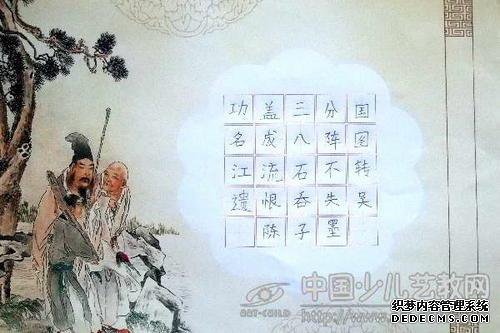 功盖三分国
名成八阵图
江流石不转
遗恨吞失吴
陈子墨
中国·少儿艺教网
ART-CHILD
织梦内容管理系统
DEDECMS.COM